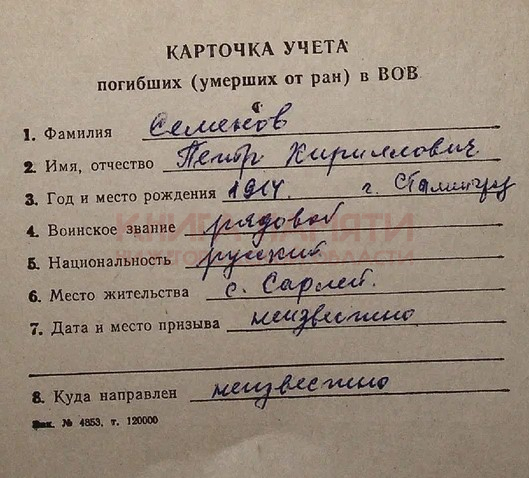 КАРТОЧКА УЧЕТА
погибших (умерших от ран) в ВОВ
1. Фамилия Семенов
2. Имя, отчество Петр Кириллович
3. Год и место рождения 1914. г. Сталинград
4. Воинское звание рядовой
КНИГА ПАМЯТИ
5. Национальность русский
ОБЛАСТИ
6. Место жительства с. Сарлей.
7. Дата и место призыва неизвестно
8. Куда направлен неизвестно
Зак. № 4853, т. 120000